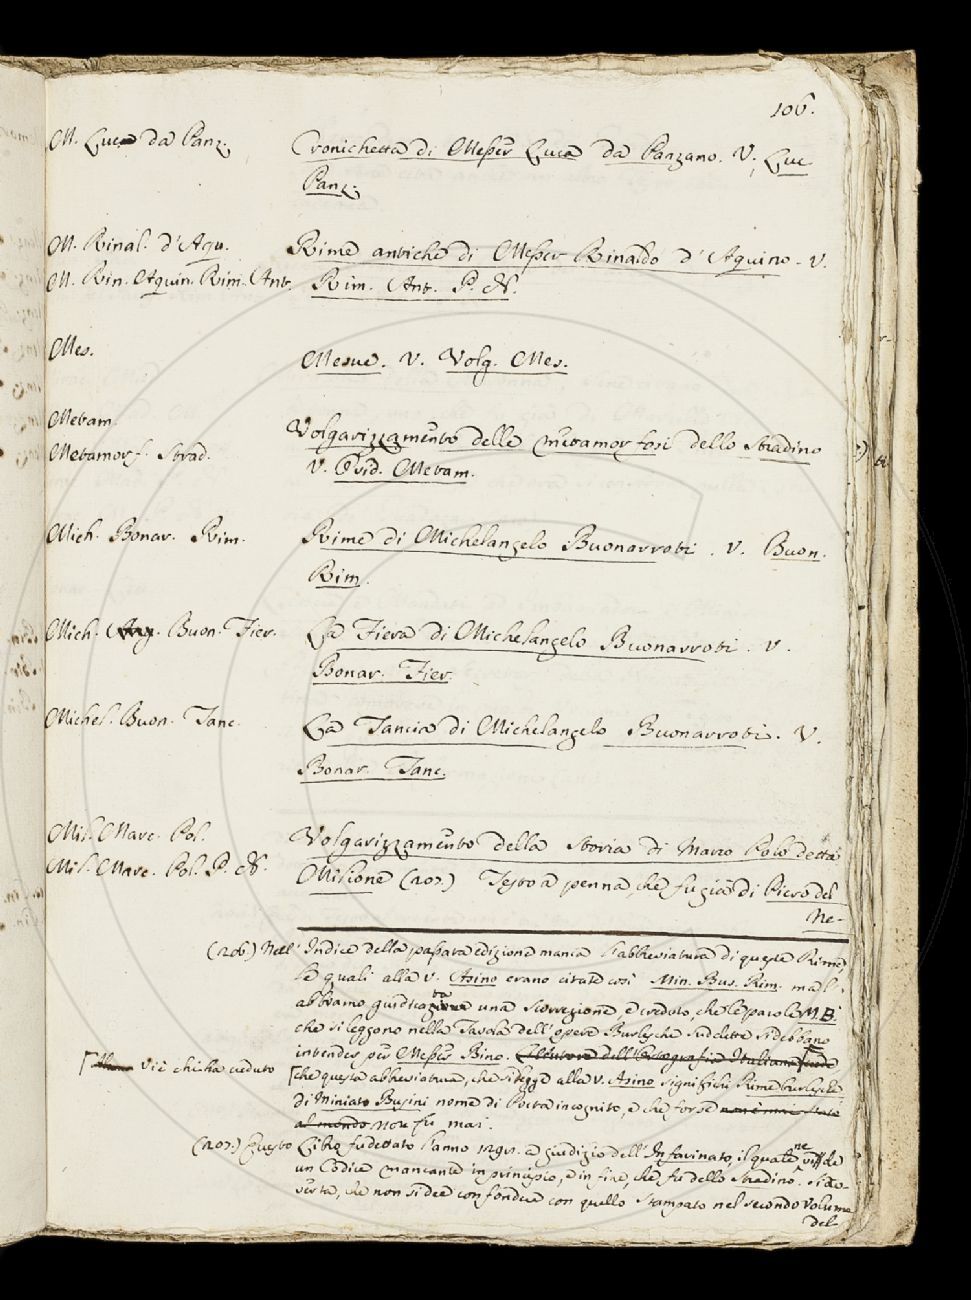 106.
M. Luca da Panz. Cronichetta di Messer Luca da Panzano. V. Luc
Panz.
M. Rinal. d'Aqu. Rime antiche di Messer Rinaldo d'Aquino. V.
M. Rin. Aquin. Rim. Ant. Rim. Ant. P. N.
Mes. Mesue. V. Volg. Mes.
Metam. Volgarizzamento delle Metamorfosi dello Stradino
Metamorf. Strad. V. Ovid. Metam.
Mich. Bonar. Rim. Rime di Michelangelo Buonarroti. V. Buon.
Rim.
Mich. Ang. Buon. Fier. La Fiera di Michelangelo Buonarroti. V.
Bonar. Fier.
Michel. Buon. Tanc. La Tancia di Michelangelo Buonarroti. V.
Bonar. Tanc.
Mil. Marc. Pol. Volgarizzamento della Storia di Marco Polo detta
Mil. Marc. Pol. P. N. Milione (207.) Testo a penna, che fu già di Piero del
Ne-
(206.) Nell' Indice della passata edizione manca l'abbreviatura di queste Rime,
le quali alla V. Asino erano citate così Min. Bus. Rim. ma l'
abbiamo giudicata una scorrezione, e creduto, che le parole M. B.
che si leggono nella Tavola dell' opere Burlesche suddette si debbano
intender per Messer Bino. L'Autore dell' Ortografia Italiana
[V'è chi ha creduto
[che questa abbreviatura, che si legge alla V. Asino significhi Rime burlesche
di Miniato Busini nome di Poeta incognito, e che forse non è mai stato
al mondo non fu mai.
(207.) Questo Libro fu dettato l'anno 1298. a giudizio dell' Infarinato, il quale ne vidde
un Codice mancante in principio, e in fine, che fu dello Stradino. Si av-
verta, che non si dee confondere con quello stampato nel secondo Volume
del